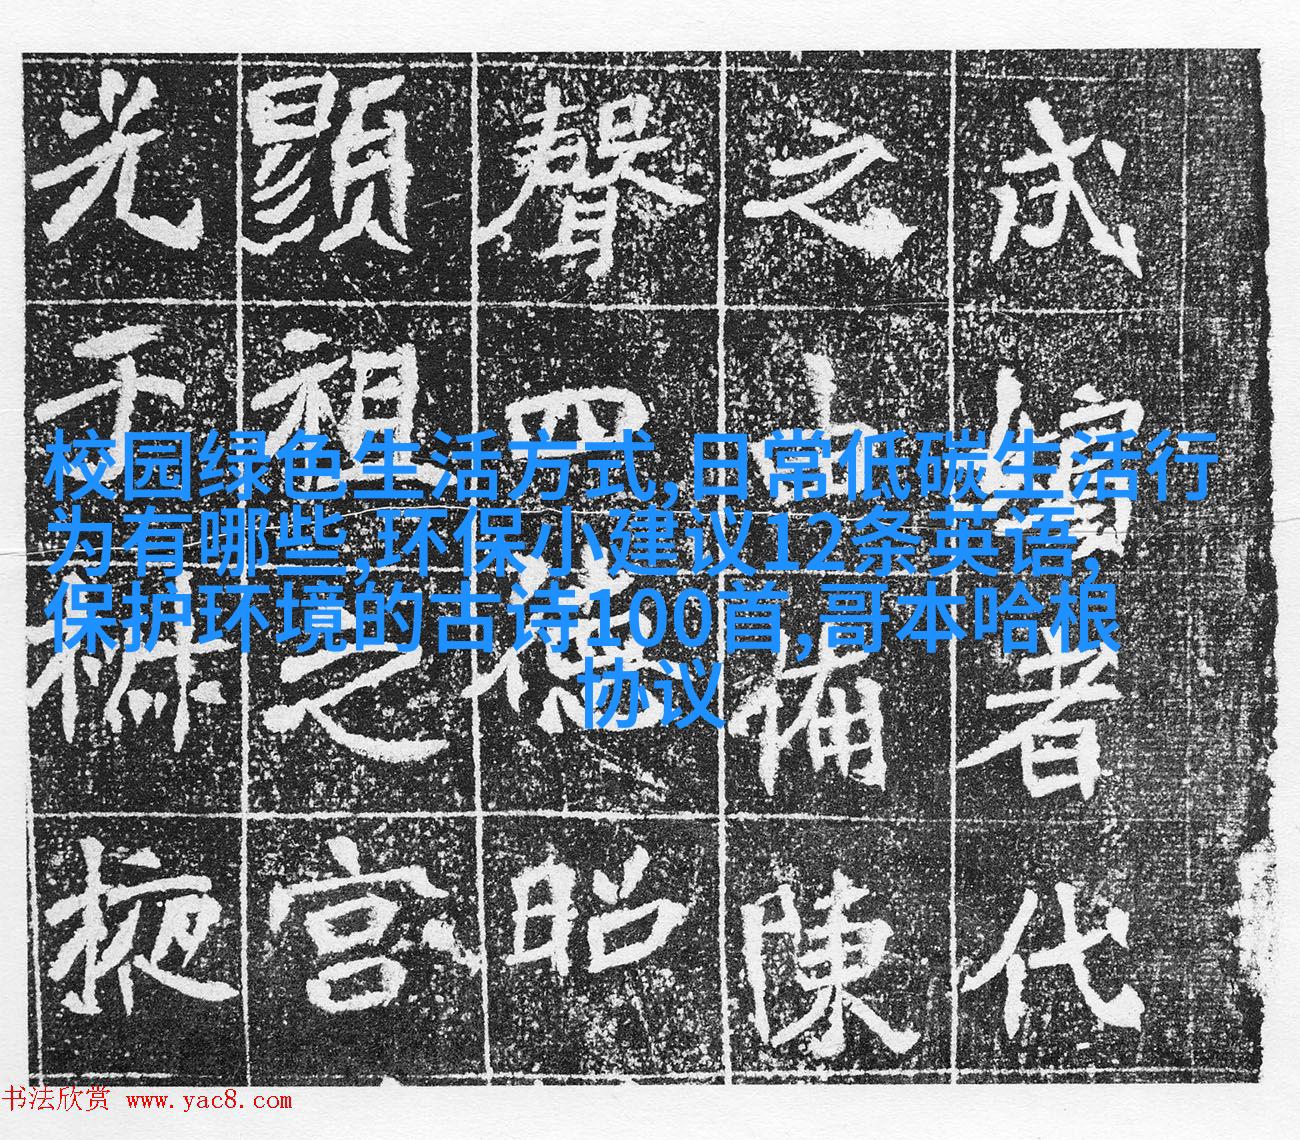 校园绿色生活方式,日常低碳生活行
为有哪些,环保小建议12条英语,
保护环境的古诗100首,哥本哈根
协议
者代
之備陳
聲四德昭
顯祖之宮
光于椒掖
书法欣赏 www.yac8.com